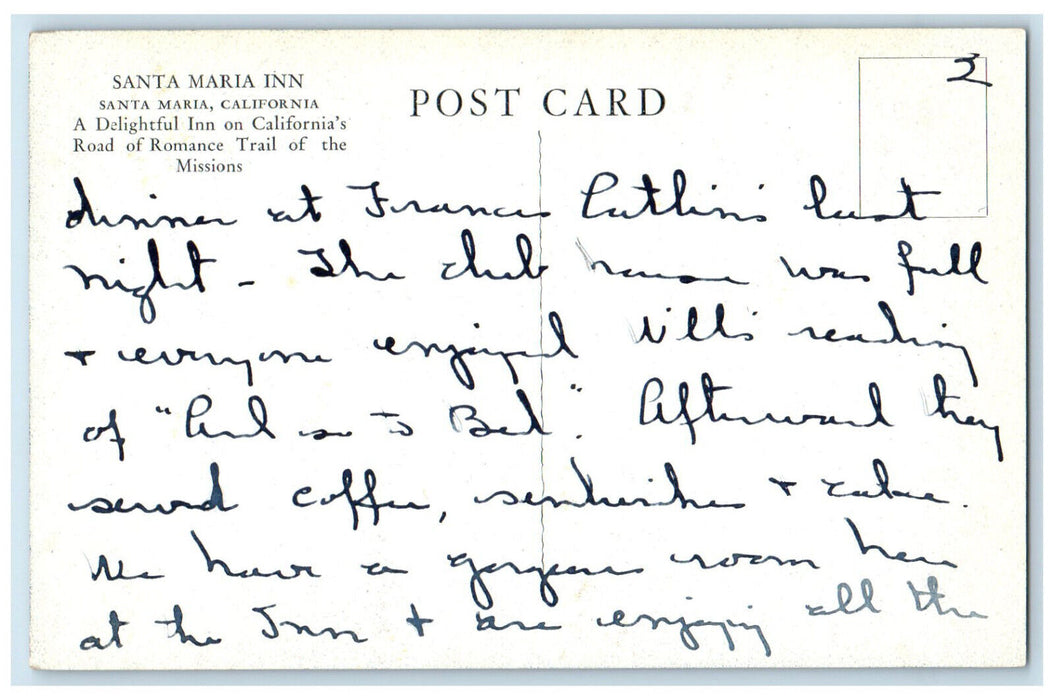 SANTA MARIA INN
SANTA MARIA, CALIFORNIA
A Delightful Inn on California's
Road of Romance Trail of the
Missions
POST CARD
2
dinner at Frances Catlin's last
night - The club house was full
+ everyone enjoyed reading
of "And so to Bed". Afterward they
served coffee, sandwiches + cake.
We have a gorgeous room here
at the Inn + are enjoying all the